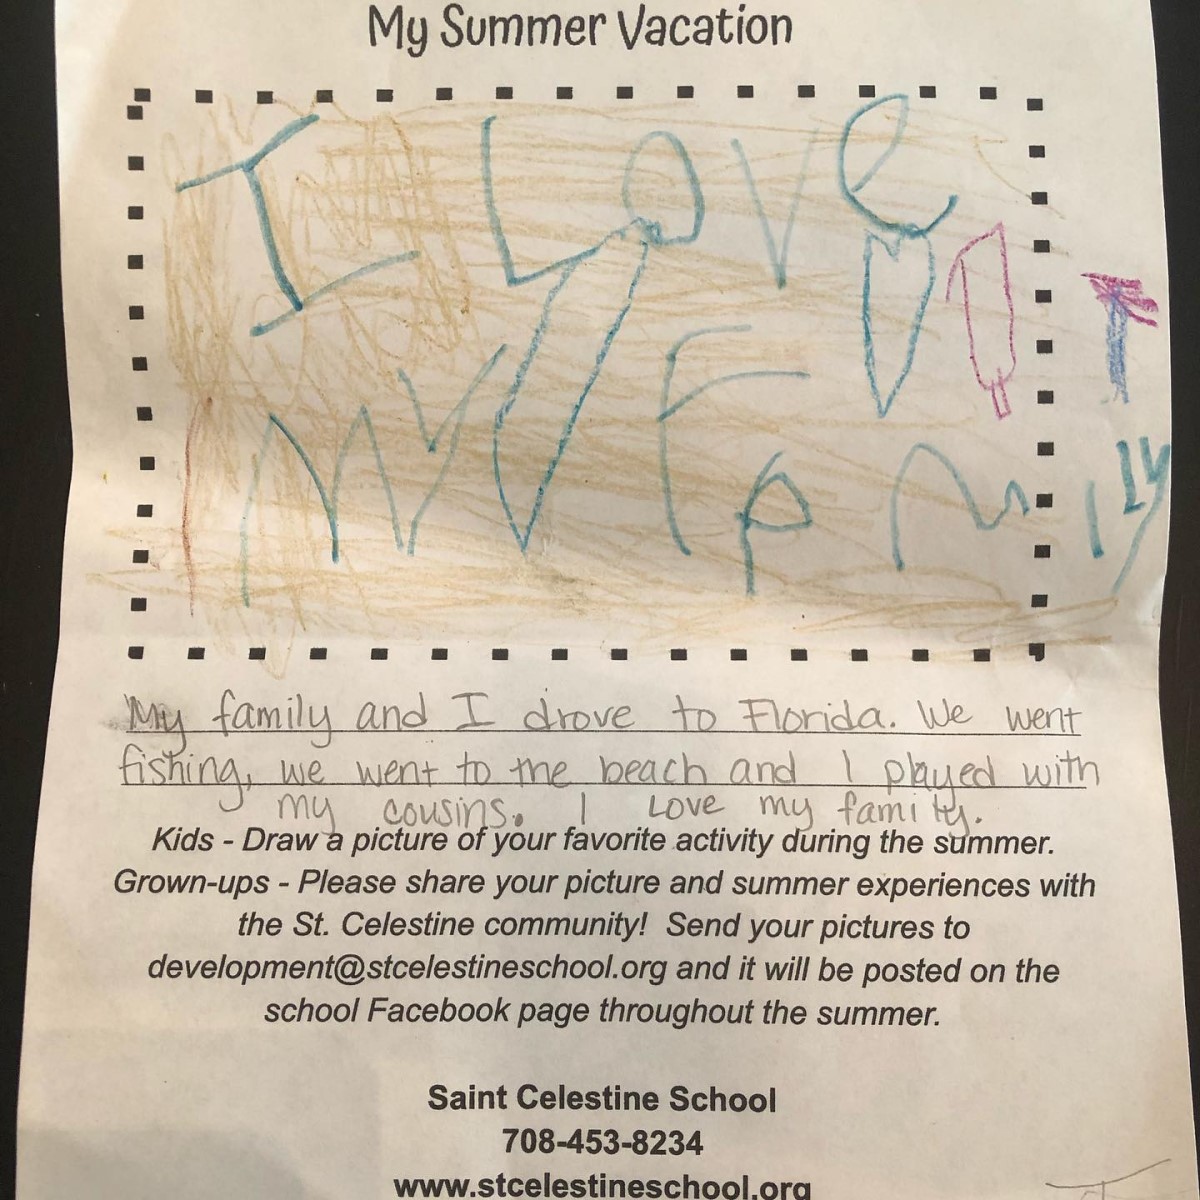 My Summer Vacation
I Love
MY Family
My family and I drove to Florida. We went
fishing, we went to the beach and I played with
my cousins. I Love my family.
Kids - Draw a picture of your favorite activity during the summer.
Grown-ups - Please share your picture and summer experiences with
the St. Celestine community! Send your pictures to
development@stcelestineschool.org and it will be posted on the
school Facebook page throughout the summer.
Saint Celestine School
708-453-8234
www.stcelestineschool.org